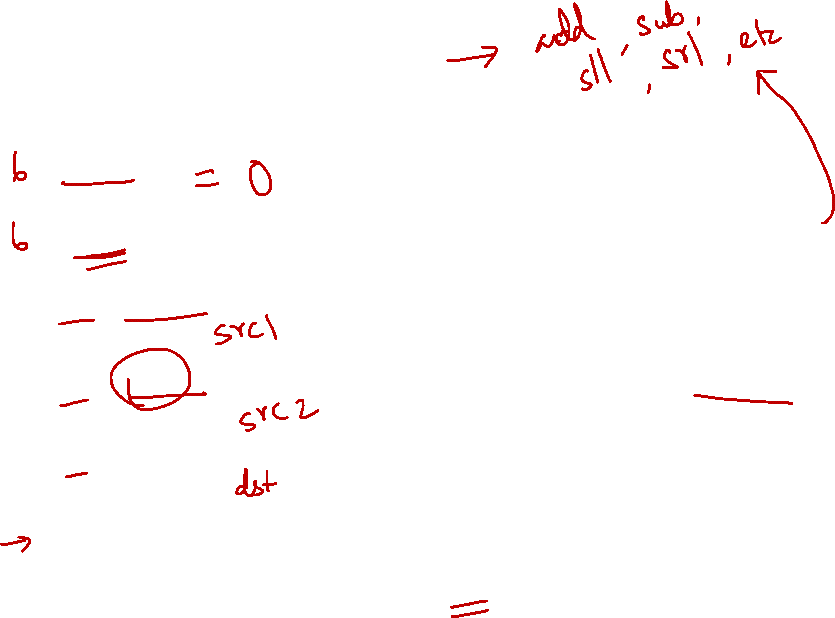 → add, sub,
sll, srl, etc
6 — = 0
6
- src1
- src2
- dst
→
=